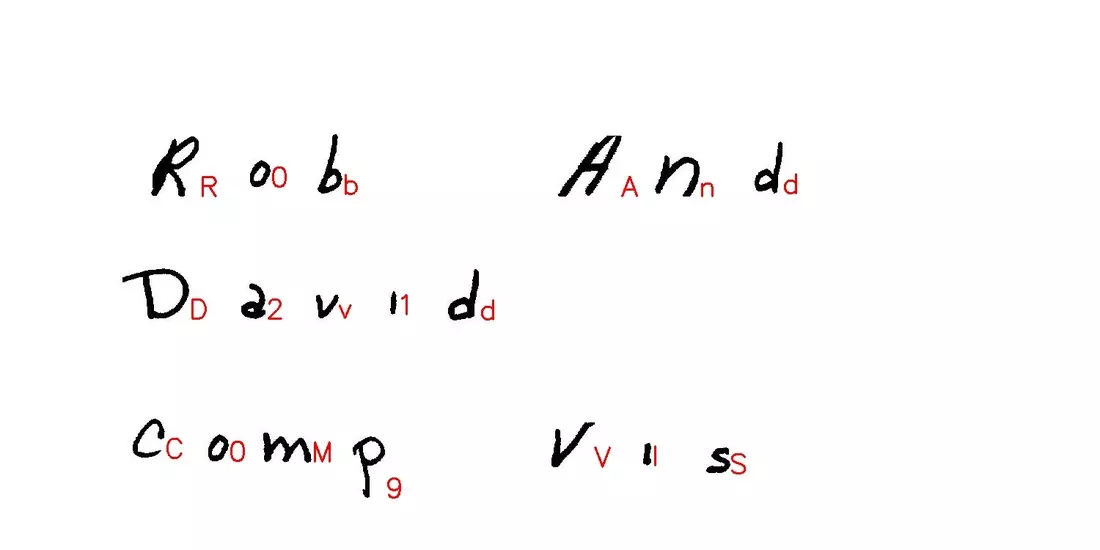 RR o0 bb AA nn dd
DD a2 vv ı1 dd
CC o0 mM p9 VV ıI sS